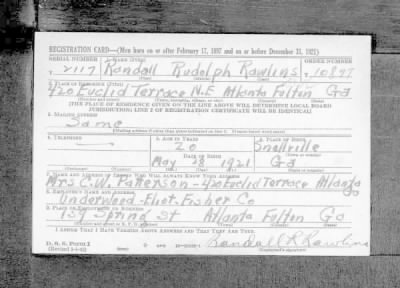 REGISTRATION CARD—(Men born on or after February 17, 1897 and on or before December 31, 1921)
SERIAL NUMBER 1. NAME (Print) ORDER NUMBER
T 2117 Randall Rudolph Rawlins 10897
(First) (Middle) (Last)
2. PLACE OF RESIDENCE (Print)
420 Euclid Terrace N.E Atlanta Fulton Ga
(Number and street) (Town, township, village, or city) (County) (State)
[THE PLACE OF RESIDENCE GIVEN ON THE LINE ABOVE WILL DETERMINE LOCAL BOARD
JURISDICTION; LINE 2 OF REGISTRATION CERTIFICATE WILL BE IDENTICAL]
3. MAILING ADDRESS
Same
[Mailing address if other than place indicated on line 2. If same insert word same]
4. TELEPHONE 5. AGE IN YEARS 6. PLACE OF BIRTH
20 Snellville
DATE OF BIRTH (Town or county)
May 28 1921 Ga
(Mo.) (Day) (Yr.) (State or country)
7. NAME AND ADDRESS OF PERSON WHO WILL ALWAYS KNOW YOUR ADDRESS
Mrs C.W. Patterson - 420 Euclid Terrace Atlanta Ga
8. EMPLOYER'S NAME AND ADDRESS
Underwood-Eliot. Fisher Co
9. PLACE OF EMPLOYMENT OR BUSINESS
159 Spring St Atlanta Fulton Ga
(Number and street or R. F. D. number) (Town) (County) (State)
I AFFIRM THAT I HAVE VERIFIED ABOVE ANSWERS AND THAT THEY ARE TRUE.
D. S. S. Form 1
(Revised 1-1-42) (over)
Randall R Rawlins
(Registrant's signature)